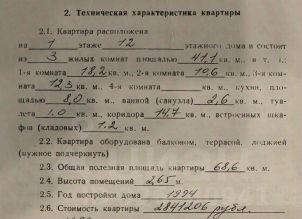 2. Техническая характеристика квартиры
2.1. Квартира расположена
на 1 этаже 12 этажного дома и состоит
из 3 жилых комнат площадью 41,1 кв. м, в т. ч.:
1-я комната 18,2 кв. м, 2-я комната 10,6 кв. м, 3-я ком-
ната 12,3 кв. м, 4-я комната кв. м, кухни, пло-
щадью 8,0 кв. м, ванной (санузла) 2,6 кв. м, туа-
лета 1.0 кв. м, коридора 14,7 кв. м, встроенных шка-
фов (кладовых) 1.2 кв. м.
2.2. Квартира оборудована балконом, террасой, лоджией
(нужное подчеркнуть)
2.3. Общая полезная площадь квартиры 68,6 кв. м
2.4. Высота помещений 2,65 м
2.5. Год постройки дома 1994
2.6. Стоимость квартиры 2841206 рубл.